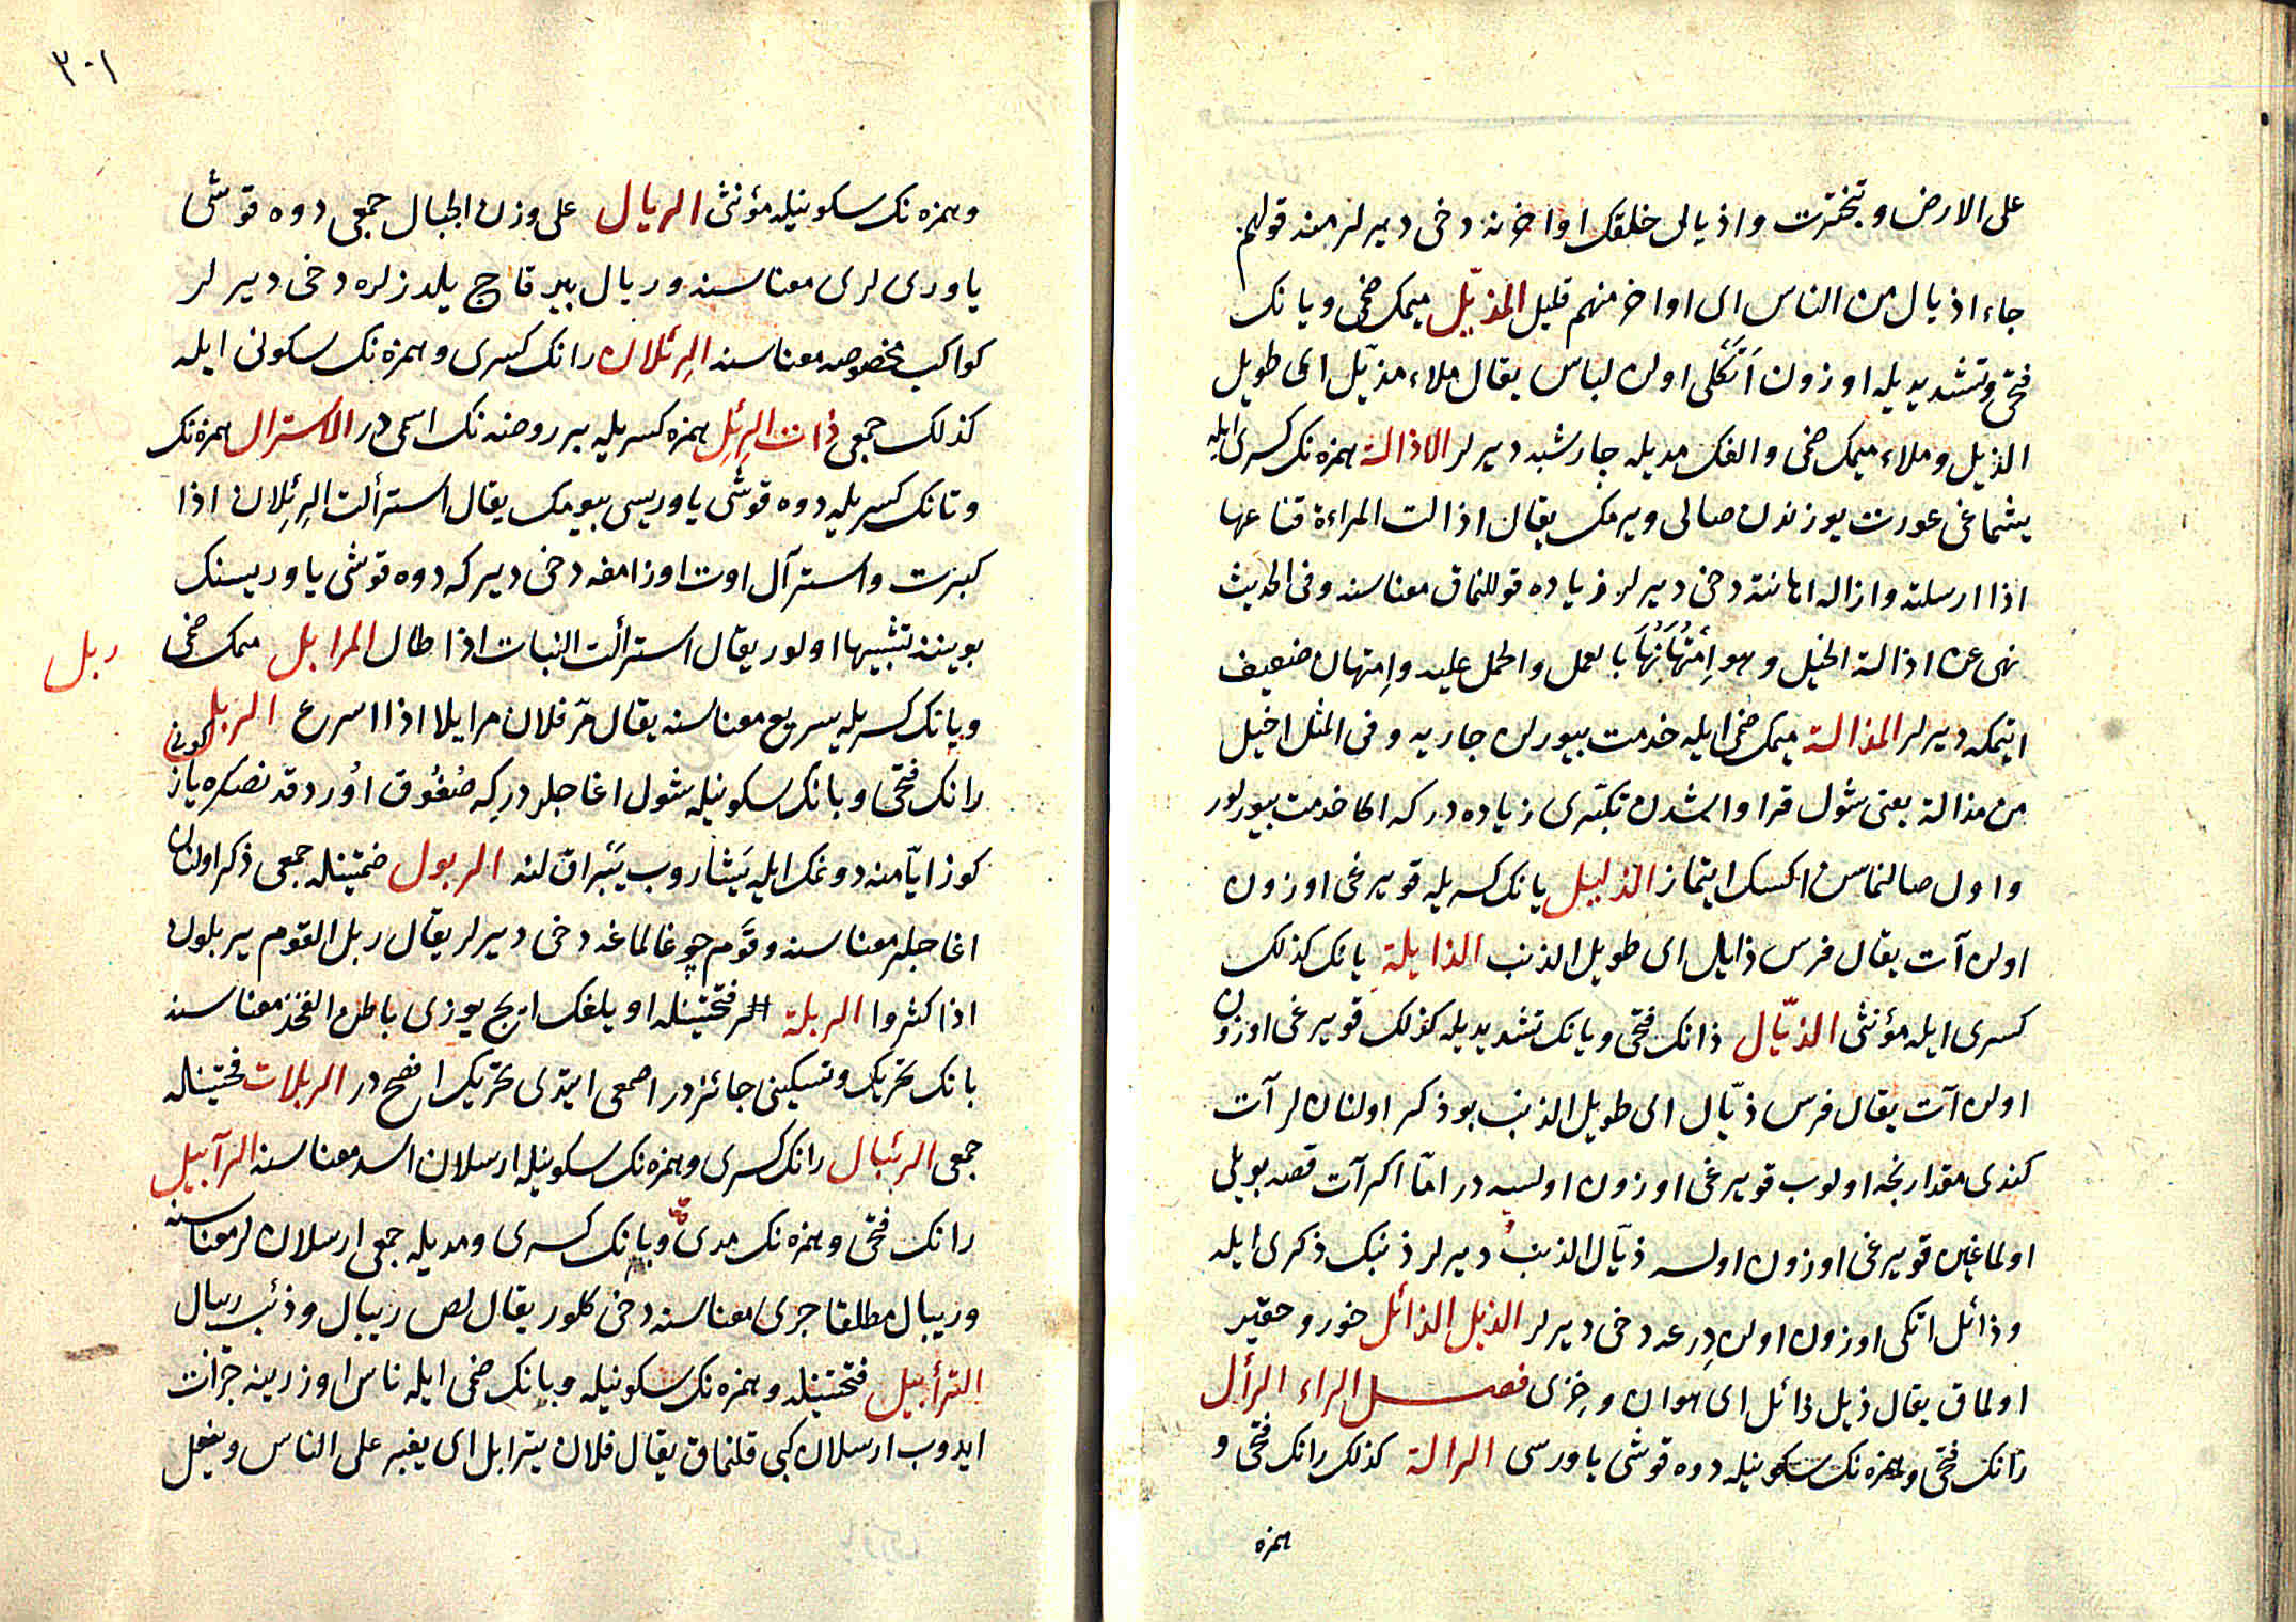 على الارض و تبخترت و اذيالى خلقك اواخرنه دخى ديرلر منه قولهم
جاء اذيال من الناس اى اواخر منهم قليل المذيّل ميمك ضمى و يانك
فتحى و تشديديله اوزون اتكلى اولن لباس يقال ملاء مذيّل اى طويل
الذيل و ملاء ميمك ضمى و الفك مديله جارشبه ديرلر الاذالة همزه نك كسرى ايله
يشماغى عورت يوزندن صالى ويرمك يقال اذالت المراءة قناعها
اذا ارسلته و ازاله اهانته دخى ديرلر زياده قوللنماق معناسنه و فى الحديث
نهى عن اذالة الخيل و هو اِمْتِهَانُهَا بالعمل و الحمل عليه و اِمتهان ضعيف
ايتمكه ديرلر المذالة ميمك ضمى ايله خدمت بيورلن جاريه و فى المثل اخيل
من مذالة يعنى شول قراواشدن تكبّرى زياده در كه اكا خدمت بيورلور
و اول صالنماسن اكسك ايتماز الذليل يانك كسريله قويرغى اوزون
اولن آت يقال فرس ذايل اى طويل الذنب الذايلة يانك كذلك
كسرى ايله مؤنثى الذيّال ذانك فتحى و يانك تشديديله كذلك قويرغى اوزون
اولن آت يقال فرس ذيّال اى طويل الذنب بو ذكر اولنان لر آت
كندى مقدارنجه اولوب قويرغى اوزون اولسه در امّا اكر آت قصه بويلى
اولماغين قويرغى اوزون اولسه ذيّال الذنب ديرلر ذنبك ذكرى ايله
و ذائل اتكى اوزون اولن دِرعه دخى ديرلر الذيل الذائل خور و حقير
اولماق يقال ذيل ذائل اى هوان و خِزى فصل الراء الرأل
رانك فتحى و همزه نك سكونيله دوه قوشى ياورسى الرالة كذلك رانك فتحى و
همزه
٣٠١
و همزه نك سكونيله مؤنثى الريال على وزن الجبال جمعى دوه قوشى
ياورى لرى معناسنه و ريال بير قاچ يلدزلره دخى ديرلر
كواكب مخصوصه معناسنه الرِئلان رانك كسرى و همزه نك سكونى ايله
كذلك جمعى ذات الرِئل همزه كسريله بر روضه نك اسمى در الاسترال همزه نك
و تانك كسريله دوه قوشى ياوريسى بيومك يقال استرألت الرِئلان اذا
كبرت و استرآل اوت اوزامغه دخى دير كه دوه قوشى ياوريسنك
بويننه تشبيها اولور يقال استرألت النبات اذا طال المرابل ميمك ضمى
ربل
و يانك كسريله سريع معناسنه يقال مرّ فلان مرايلا اذا اسرع الربل
رانك فتحى و بانك سكونيله شول اغاجلر در كه صُغُوق اوُردقدنصكره ياز
كونى
كوز ايّامنه دونمك ايله يَشاروب يَپراقلنه الربول ضمتينله جمعى ذكر اولنان
اغاجلر معناسنه و قَوم چوغالماغه دخى ديرلر يقال ربل القوم يربلون
اذا كثروا الربلة فتحتينله اويلغك ايچ يوزى باطن الفخذ معناسنه
بانك تحريك و تسكينى جائزدر اصمعى ايتدى تحريك افصح در الربلات فتحتينله
جمعى الرئبال رانك كسرى و همزه نك سكونيله ارسلان اسد معناسنه الرآبيل
رانك فتحى و همزه نك مدى و بانك كسرى و مديله جمعى ارسلان لر معناسنه
و ريبال مطلقا جرى معناسنه دخى كلور يقال لص ريبال و ذئب ريبال
الترأبيل فتحتينله و همزه نك سكونيله و بانك ضمى ايله ناس اوزرينه جرائت
ايدوب ارسلان كبى قلنماق يقال فلان يترابل اى يغير على الناس و يفعل